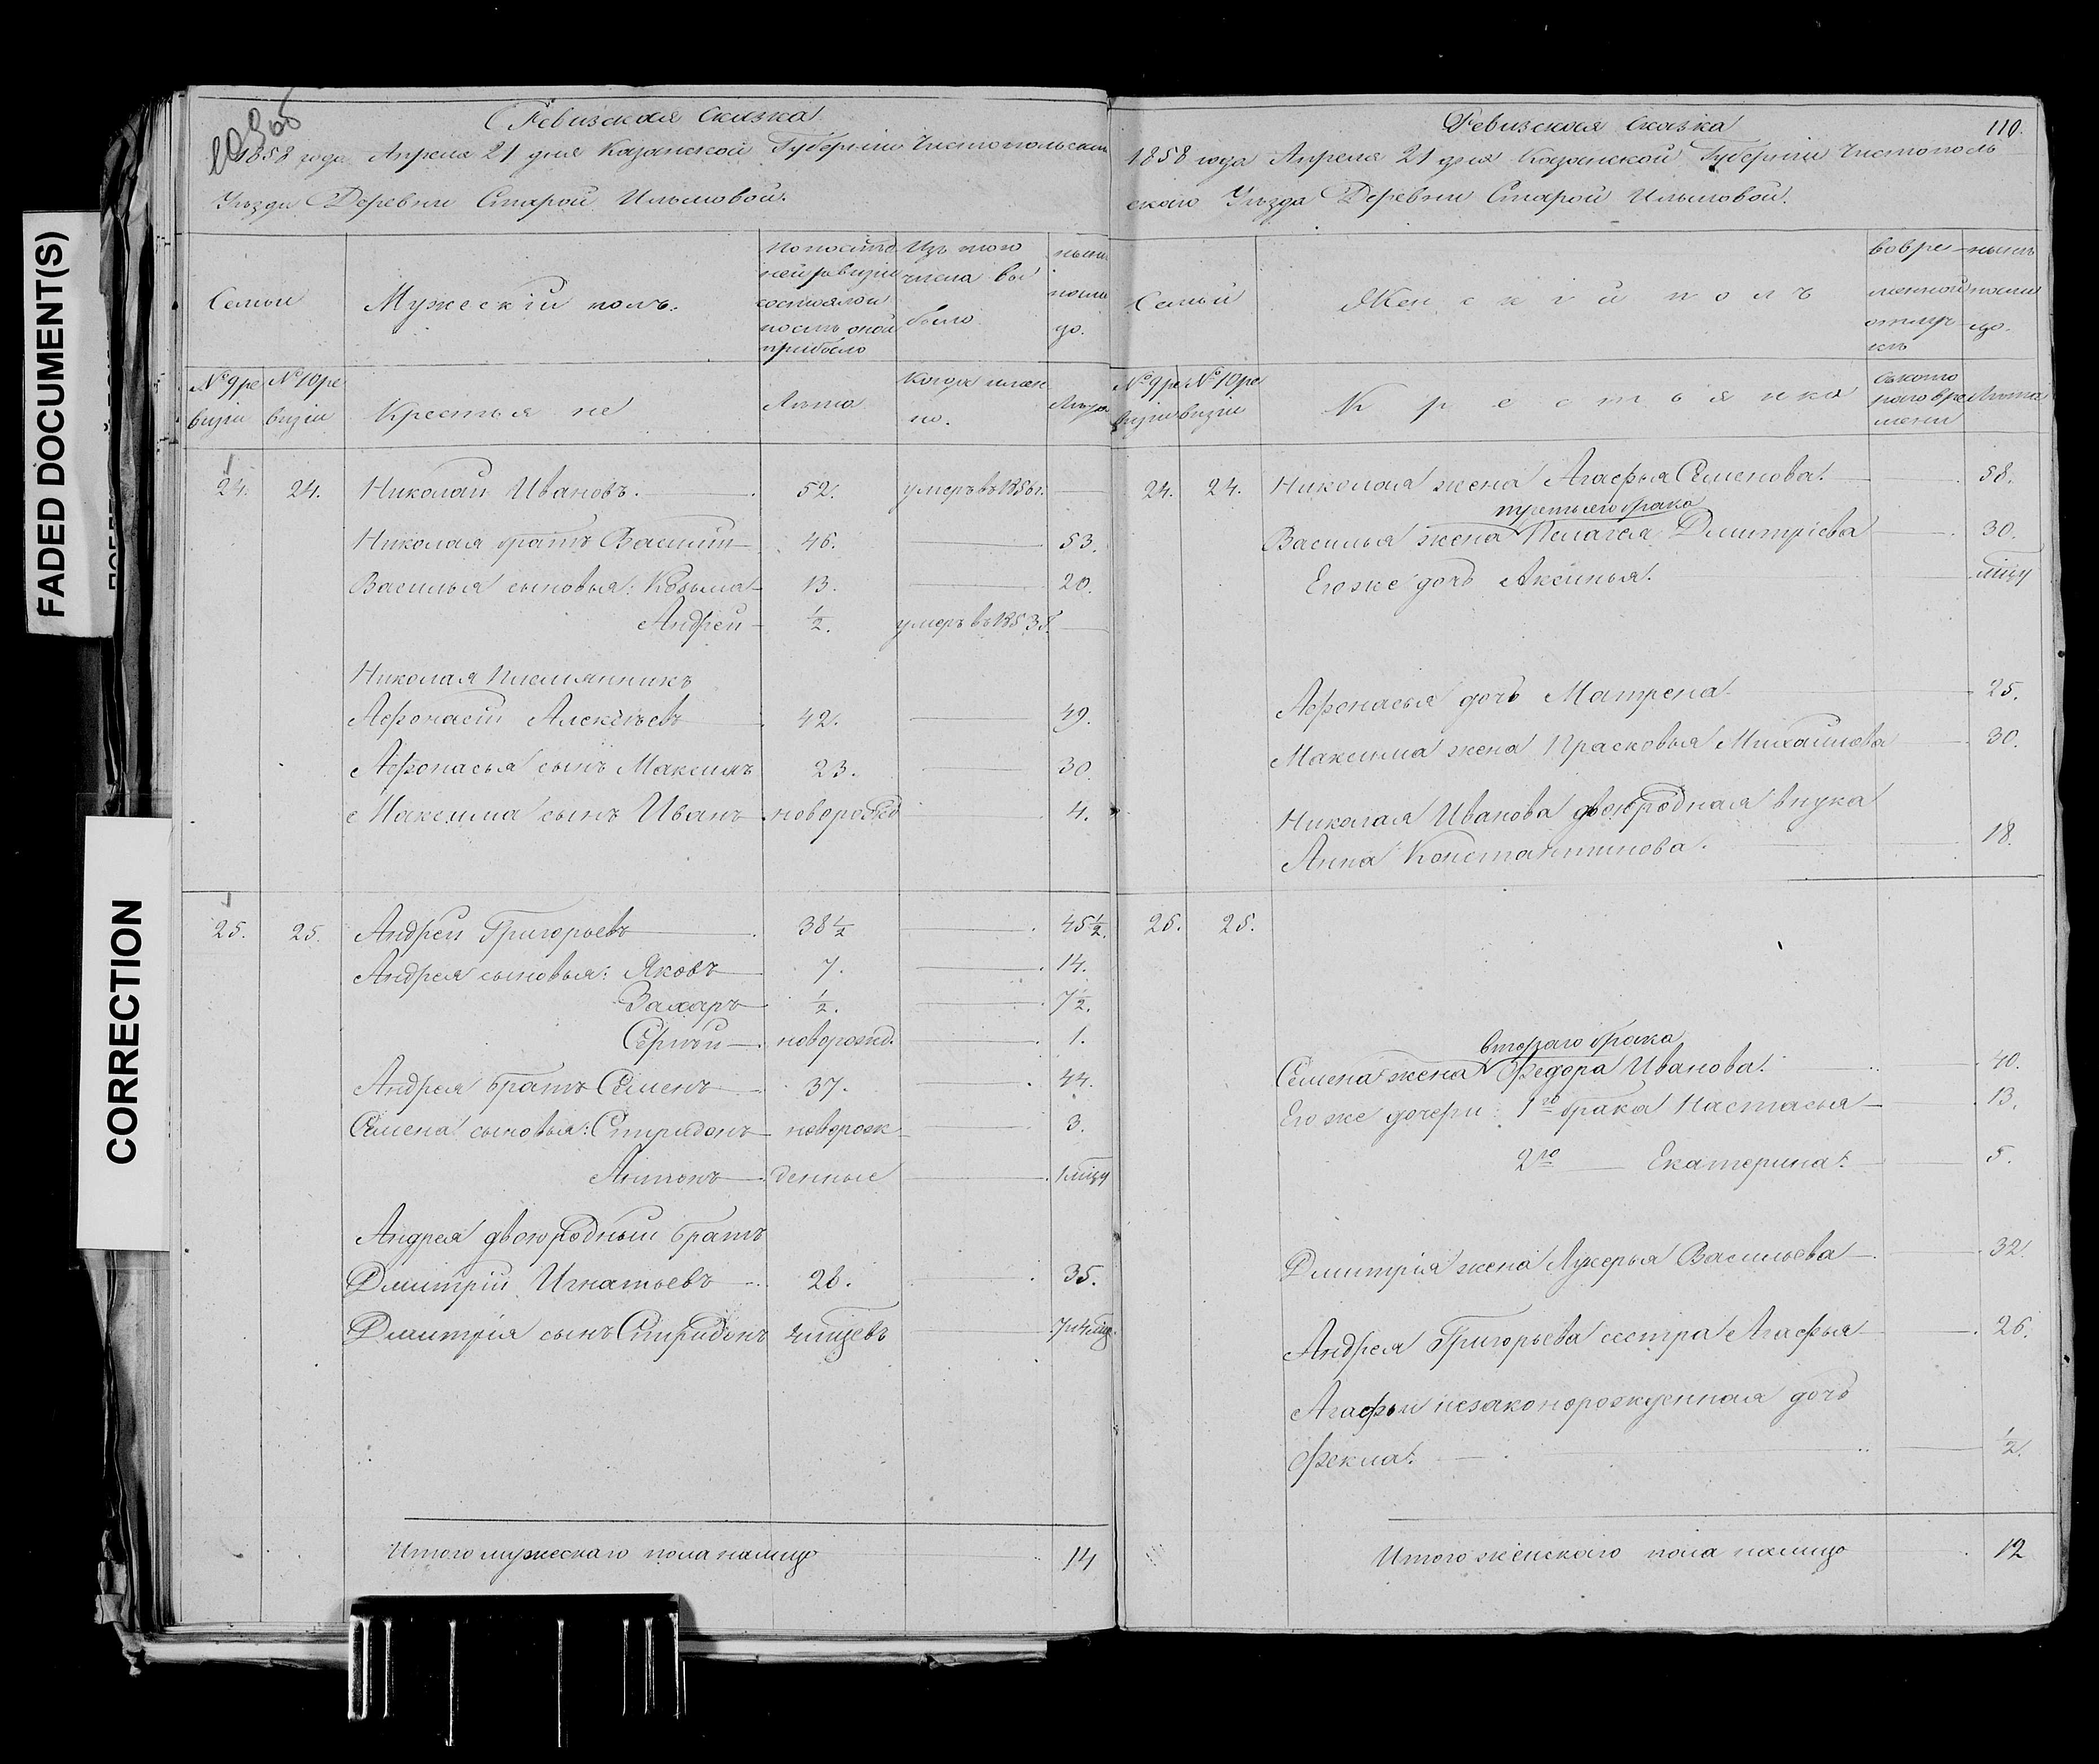 FADED DOCUMENT(S)
CORRECTION
Ревизская сказка
1858 года Апреля 21 дня Казанской Губернiи Чистопольскаго
Уѣзда Деревни Старой Ильмовой.
Семьи
Мужескiй полъ.
По послѣд
ней ревизiи
состояло и
послѣ оной
прибыло
Изъ того
числа вы
было
нынѣ
на ли
цо.
№ 9 ре
визiи
№ 10 ре
визiи
Крестьяне
Лѣта
Когда имен
но.
Лѣта
24. 24. Николай Ивановъ. 52. умеръ въ 1856г.
Николая братъ Василiй 46. 53.
Василья сыновья: Козьма 13. 20.
Андрей ½. умеръ въ 1853г.
Николая племянникъ
Афонасiй Алексѣевъ 42. 49.
Афонасья сынъ Максимъ 23. 30.
Максима сынъ Иванъ новорожд 4.
25. 25. Андрей Григорьевъ 38½ 45½.
Андрея сыновья: Яковъ 7. 14.
Захаръ ½. 7½.
Сергѣй новорожд. 1.
Андрея братъ Семенъ 37. 44.
Семена сыновья: Спиридонъ новорож 3.
Антонъ денные 1 мѣцу
Андрея двоюродный братъ
Дмитрiй Игнатьевъ 28. 35.
Дмитрiя сынъ Спиридонъ 4 мѣцевъ 7 и 4 мѣц.
Итого мужескаго пола налицо 14
Ревизская сказка
110.
1858 года Апреля 21 дня Казанской Губернiи Чистополь
скаго Уѣзда Деревни Старой Ильмовой.
Семьи
Женскiй полъ
во вре
менной
отлуч
кѣ
нынѣ
на ли
цо.
№ 9 ре
визiи
№ 10 ре
визiи
Крестьянка
съ кото
раго вре
мени
Лѣта
24. 24. Николая жена Агафья Семенова. 58.
третьяго брака
Василья жена Пелагея Дмитрiева 30.
Его же дочь Аксинья. мѣцу
Афонасья дочь Матрена 25.
Максима жена Прасковья Михайлова 30.
Николая Иванова двоюродная внука
Анна Константинова. 18.
25. 25.
втораго брака
Семена жена Федора Иванова. 40.
Его же дочери: 1го брака Настасья 13.
2го Екатерина. 5.
Дмитрiя жена Лукерья Васильева 32.
Андрея Григорьева сестра Агафья 26.
Агафьи незаконорожденная дочь
Фекла. ½.
Итого женскаго пола налицо 12